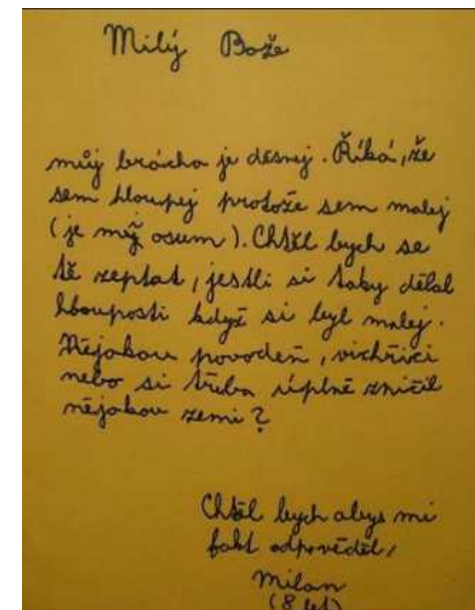 Milý Bože
můj brácha je děsnej. Říká, že
sem hloupej protože sem malej
(je mğ osum). Chtěl bych se
tě zeptat, jestli si taky dělal
hlouposti když si byl malej.
Nějakou povodeň, vichřici
nebo si třeba úplně zničil
nějakou zemi?
Chtěl bych abys mi
fakt odpověděl,
Milan
(8 let)